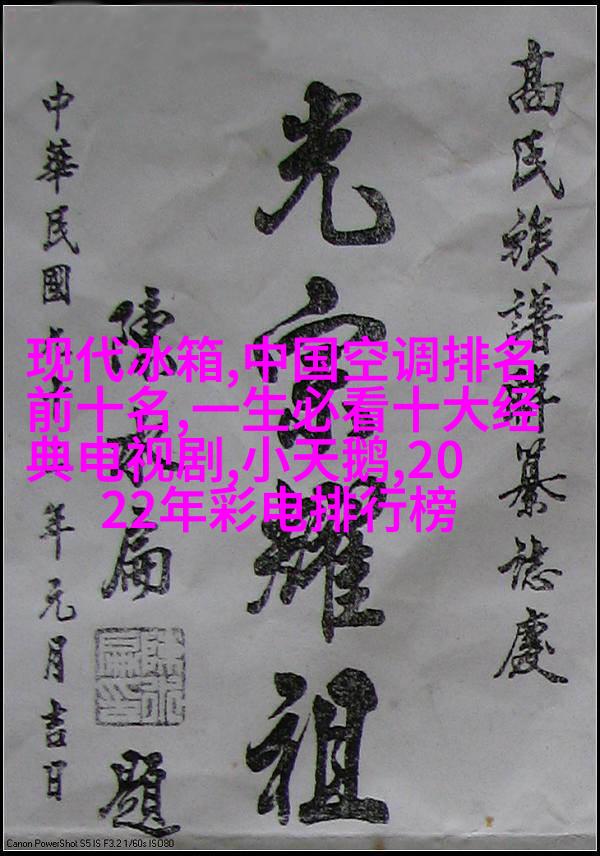 高氏族譜纂誌慶
光宗耀祖
陳水扁
題
中華民國
年元月吉日
现代冰箱,中国空调排名
前十名,一生必看十大经
典电视剧,小天鹅,20
22年彩电排行榜
Canon PowerShot S5 IS F3.2 1/60s ISO80